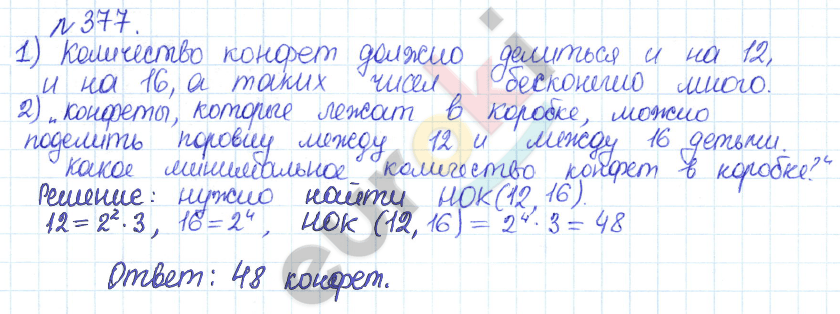 №377.
1) Количество конфет должно делиться и на 12,
и на 16, а таких чисел бесконечно много.
2) „Конфеты, которые лежат в коробке, можно
поделить поровну между 12 и между 16 детьми.
Какое минимальное количество конфет в коробке?“
Решение: нужно найти НОК(12, 16).
12 = 2² · 3, 16 = 2⁴, НОК (12, 16) = 2⁴ · 3 = 48
Ответ: 48 конфет.
euroki